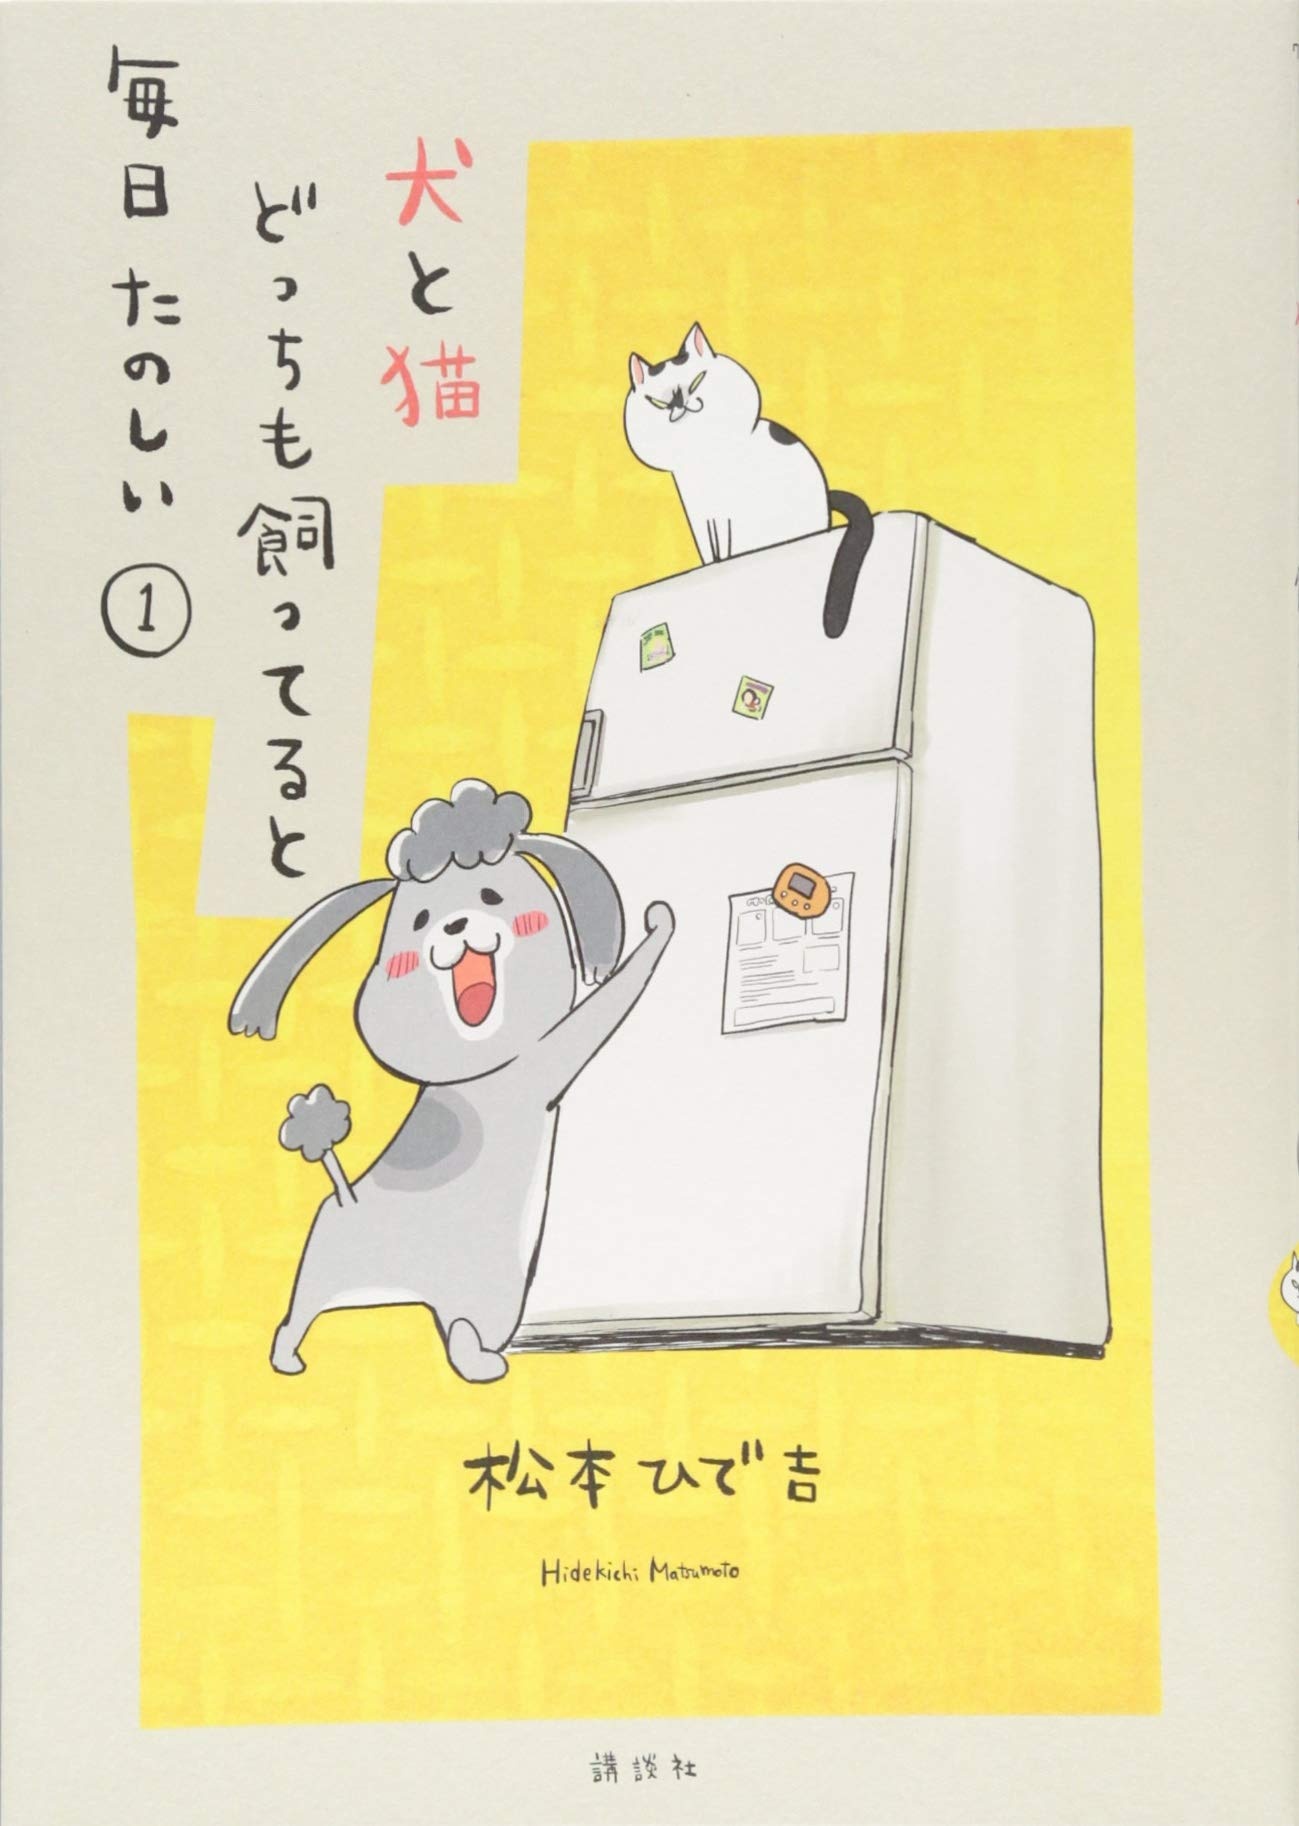 犬と猫
どっちも飼ってると
毎日たのしい ①
松本ひで吉
Hidekichi Matsumoto
講談社